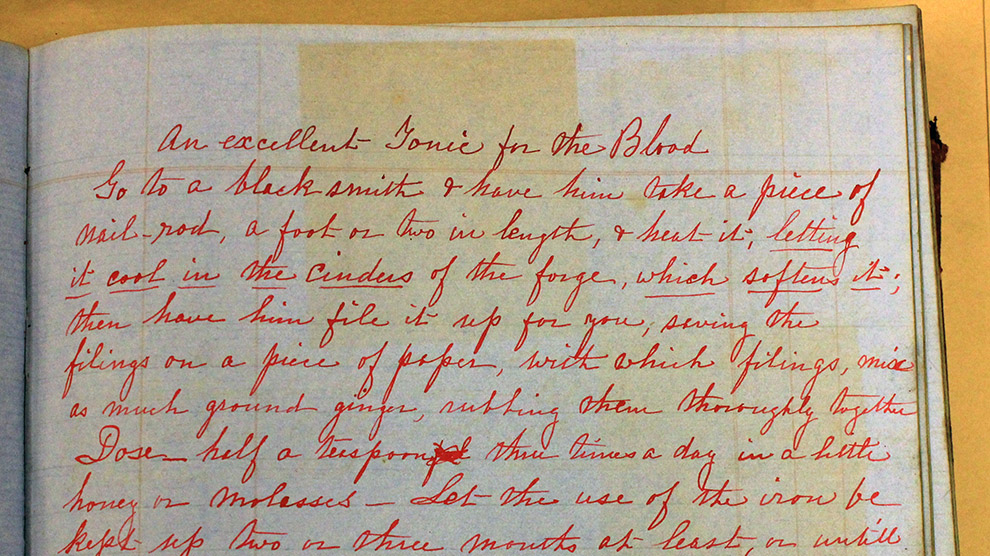 An excellent Tonic for the Blood
Go to a blacksmith & have him take a piece of
nail-rod, a foot or two in length, & heat it, letting
it cool in the cinders of the forge, which softens it;
then have him file it up for you, saving the
filings on a piece of paper, with which filings, mix
as much ground ginger, rubbing them thoroughly together
Dose – half a teaspoon three times a day in a little
honey or molasses – Let the use of the iron be
kept up two or three months at least, or untill